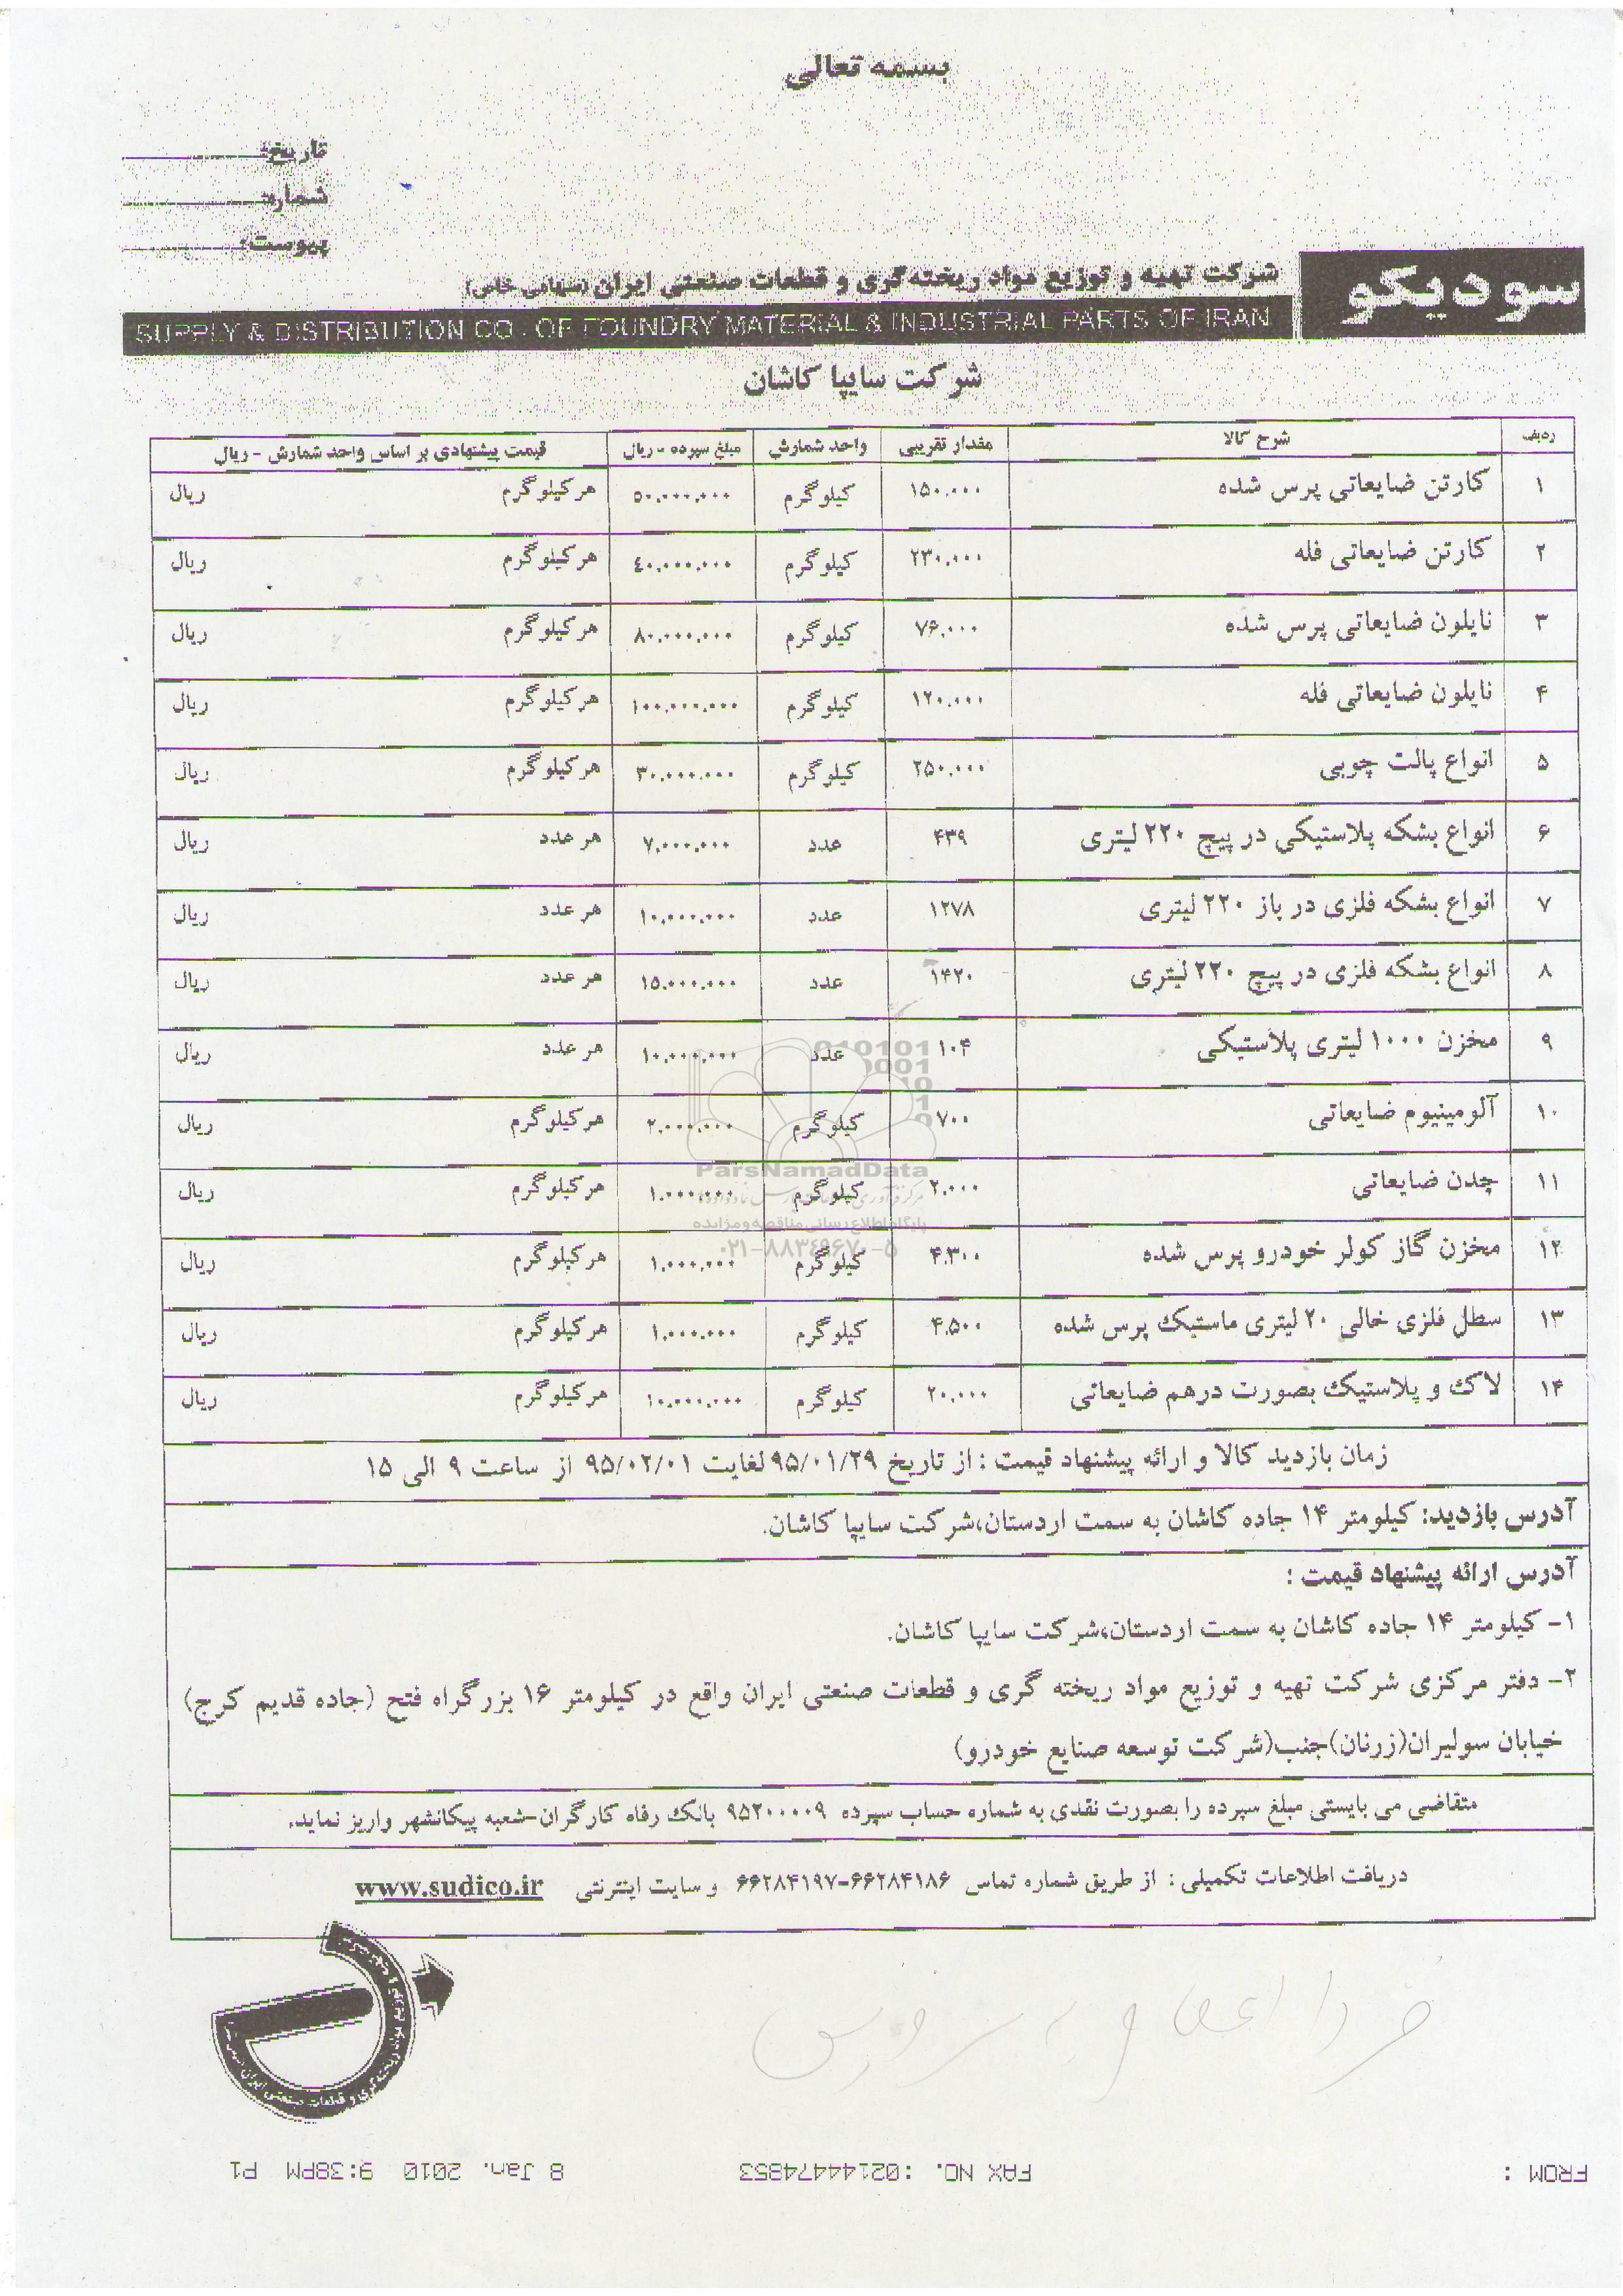 بسمه تعالی
تاریخ:
شماره:
پیوست:
سودیکو
شرکت تهیه و توزیع مواد ریخته‌گری و قطعات صنعتی ایران (سهامی خاص)
SUPPLY & DISTRIBUTION CO. OF FOUNDRY MATERIAL & INDUSTRIAL PARTS OF IRAN
شرکت سایپا کاشان
ردیف شرح کالا مقدار تقریبی واحد شمارش مبلغ سپرده - ریال قیمت پیشنهادی بر اساس واحد شمارش - ریال
۱ کارتن ضایعاتی پرس شده ۱۵۰.۰۰۰ کیلوگرم ۵۰.۰۰۰.۰۰۰ هرکیلوگرم ریال
۲ کارتن ضایعاتی فله ۲۳۰.۰۰۰ کیلوگرم ۴۰.۰۰۰.۰۰۰ هرکیلوگرم ریال
۳ نایلون ضایعاتی پرس شده ۷۶.۰۰۰ کیلوگرم ۸۰.۰۰۰.۰۰۰ هرکیلوگرم ریال
۴ نایلون ضایعاتی فله ۱۲۰.۰۰۰ کیلوگرم ۱۰۰.۰۰۰.۰۰۰ هرکیلوگرم ریال
۵ انواع پالت چوبی ۲۵۰.۰۰۰ کیلوگرم ۳۰.۰۰۰.۰۰۰ هرکیلوگرم ریال
۶ انواع بشکه پلاستیکی در پیچ ۲۲۰ لیتری ۴۳۹ عدد ۷.۰۰۰.۰۰۰ هر عدد ریال
۷ انواع بشکه فلزی در باز ۲۲۰ لیتری ۱۲۷۸ عدد ۱۰.۰۰۰.۰۰۰ هر عدد ریال
۸ انواع بشکه فلزی در پیچ ۲۲۰ لیتری ۱۴۲۰ عدد ۱۵.۰۰۰.۰۰۰ هر عدد ریال
۹ مخزن ۱۰۰۰ لیتری پلاستیکی ۱۰۴ عدد ۱۰.۰۰۰.۰۰۰ هر عدد ریال
۱۰ آلومینیوم ضایعاتی ۷۰۰ کیلوگرم ۲.۰۰۰.۰۰۰ هرکیلوگرم ریال
ParsNamadData
۱۱ چدن ضایعاتی ۲.۰۰۰ کیلوگرم ۱.۰۰۰.۰۰۰ هرکیلوگرم ریال
پایگاه اطلاع رسانی مناقصه و مزایده
۰۲۱-۸۸۳۴۹۶۷۰-۵
۱۲ مخزن گاز کولر خودرو پرس شده ۴.۳۰۰ کیلوگرم ۱.۰۰۰.۰۰۰ هرکیلوگرم ریال
۱۳ سطل فلزی خالی ۲۰ لیتری ماستیک پرس شده ۴.۵۰۰ کیلوگرم ۱.۰۰۰.۰۰۰ هرکیلوگرم ریال
۱۴ لاک و پلاستیک بصورت درهم ضایعاتی ۲۰.۰۰۰ کیلوگرم ۱۰.۰۰۰.۰۰۰ هرکیلوگرم ریال
زمان بازدید کالا و ارائه پیشنهاد قیمت : از تاریخ ۹۵/۰۱/۲۹ لغایت ۹۵/۰۲/۰۱ از ساعت ۹ الی ۱۵
آدرس بازدید: کیلومتر ۱۴ جاده کاشان به سمت اردستان،شرکت سایپا کاشان.
آدرس ارائه پیشنهاد قیمت :
۱- کیلومتر ۱۴ جاده کاشان به سمت اردستان،شرکت سایپا کاشان.
۲- دفتر مرکزی شرکت تهیه و توزیع مواد ریخته گری و قطعات صنعتی ایران واقع در کیلومتر ۱۶ بزرگراه فتح (جاده قدیم کرج)
خیابان سولیران(زرنان)جنب(شرکت توسعه صنایع خودرو)
متقاضی می بایستی مبلغ سپرده را بصورت نقدی به شماره حساب سپرده ۹۵۲۰۰۰۰۹ بانک رفاه کارگران-شعبه پیکانشهر واریز نماید.
دریافت اطلاعات تکمیلی : از طریق شماره تماس ۶۶۲۸۴۱۸۶-۶۶۲۸۴۱۹۷ و سایت اینترنتی www.sudico.ir
FROM : FAX NO. :02144474853 8 Jan. 2010 9:38PM P1